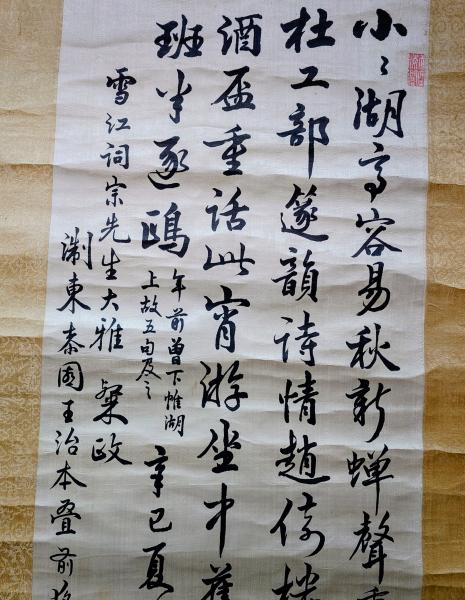 小〻湖亭容易秋新蝉聲
杜工部邃韻詩情趙倚楼
酒盃重話此宵游坐中舊
班半逐鷗
年前曾下帷湖
上故五句及之
辛巳夏
雪江詞宗先生大雅粲政
淛東泰園王治本叠前